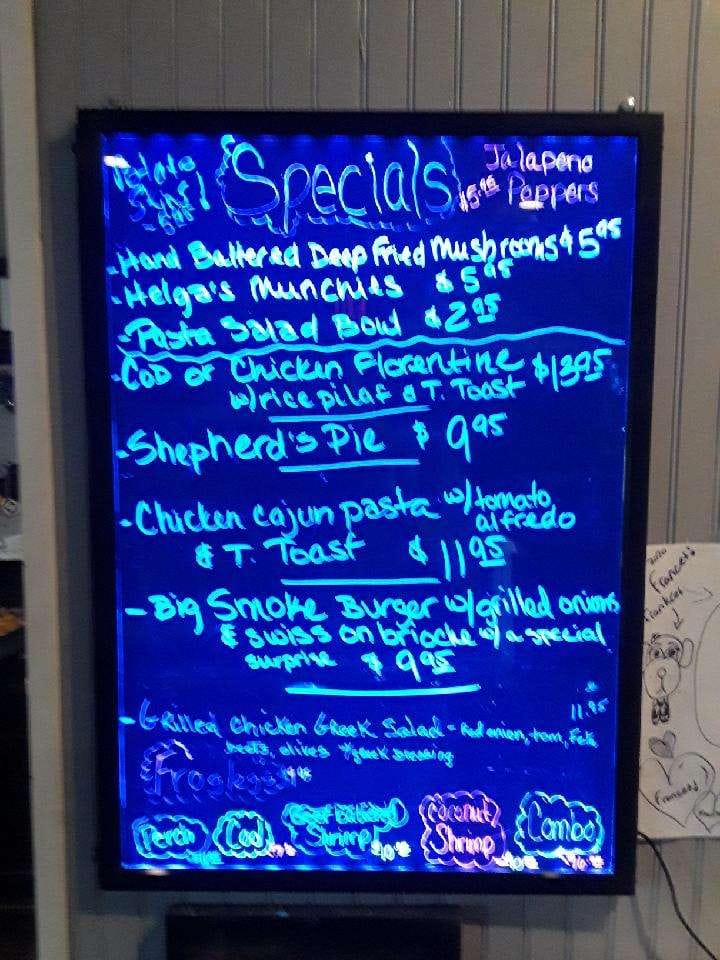 Specials
Jalapeno
Poppers
$5.95
-Hand Battered Deep Fried Mushrooms $5.95
-Helga's Munchies $5.95
-Pasta Salad Bowl $2.95
-Cod or Chicken Florentine $13.95
w/rice pilaf & T. Toast
-Shepherd's Pie $9.95
-Chicken cajun pasta w/tomato
alfredo
& T. Toast $11.95
-Big Smoke Burger w/grilled onions
& swiss on brioche w/a special
surprise $9.95
-Grilled Chicken Greek Salad - Red onion, tom, Feta,
11.95
beets, olives w/greek dressing
Perch
Cod
Beer Battered
Shrimp
Coconut
Shrimp
Combo
2020
Frances's
Frances